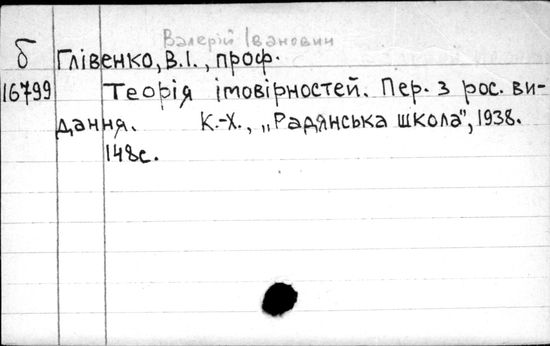 Валерій Іванович
б Глівенко, В.І., проф.
16799 Теорія імовірностей. Пер. з рос. ви-
дання. К.-Х., „Радянська школа", 1938.
148с.